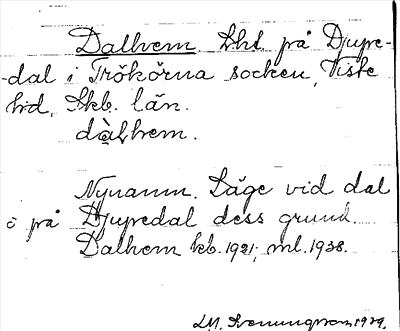 Dalhem. Lht på Djupe-
-dal i Trökörna socken, Viste
hd, Skb. län.
dàlhem.
Nynamn. Läge vid dal
å på Djupedal dess grund.
Dalhem kb. 1921, ml. 1938.
1939.